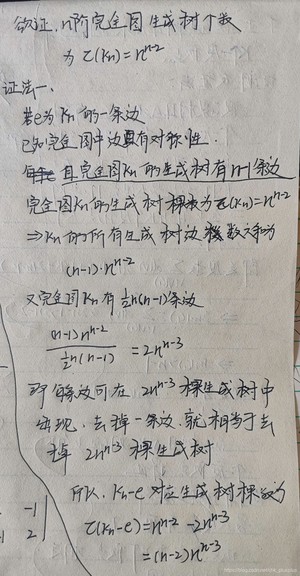 欲证, n阶完全图生成树个数
为 τ(Kn)=n^{n-2}
证法一、
若e为Kn的一条边
已知完全图中边具有对称性.
且完全图Kn的生成树有n-1条边
完全图Kn的生成树棵数为τ(Kn)=n^{n-2}
⇒Kn的所有生成树边数之和为
(n-1)·n^{n-2}
又完全图Kn有½n(n-1)条边
(n-1)n^{n-2} / ½n(n-1) = 2n^{n-3}
即每条边可在2n^{n-3}棵生成树中
出现. 去掉一条边. 就相当于去
掉 2n^{n-3} 棵生成树
所以. Kn-e 对应生成树棵数为
τ(Kn-e)=n^{n-2}-2n^{n-3}
=(n-2)n^{n-3}
-1
2